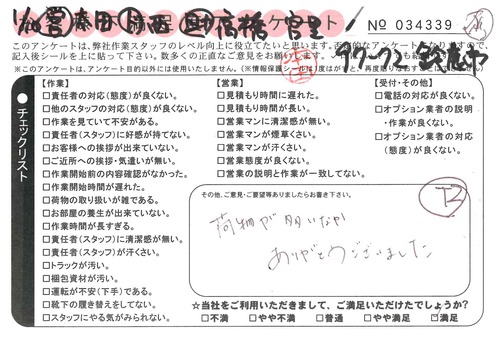 № 034339
このアンケートは、弊社作業スタッフのレベル向上に役立てたいと思います。
チェックリスト
【作業】
□責任者の対応(態度)が良くない。
□他のスタッフの対応(態度)が良くない。
□作業を見ていて不安がある。
□責任者(スタッフ)に好感が持てない。
□お客様への挨拶が出来ていない。
□ご近所への挨拶・気遣いが無い。
□作業開始前の内容確認がなかった。
□作業開始時間が遅れた。
□荷物の取り扱いが雑である。
□お部屋の養生が出来ていない。
□作業時間が長すぎる。
□責任者(スタッフ)に清潔感が無い。
□責任者(スタッフ)が汗くさい。
□トラックが汚い。
□梱包資材が汚い。
□運転が不安(下手)である。
□靴下の履き替えをしてない。
□スタッフにやる気がみられない。
【営業】
□見積もり時間に遅れた。
□見積もり時間が長い。
□営業マンに清潔感が無い。
□営業マンが煙草くさい。
□営業マンが汗くさい。
□営業態度が良くない。
□営業の説明と作業が一致してない。
【受付・その他】
□電話の対応が良くない。
□オプション業者の説明
・作業が良くない。
□オプション業者の対応
(態度)が良くない。
その他、ご意見・ご要望等ありましたらお書き下さい。
荷物が多いなか
ありがとうございました
☆当社をご利用いただきまして、ご満足いただけたでしょうか?
□不満 □やや不満 □普通 □やや満足 □満足